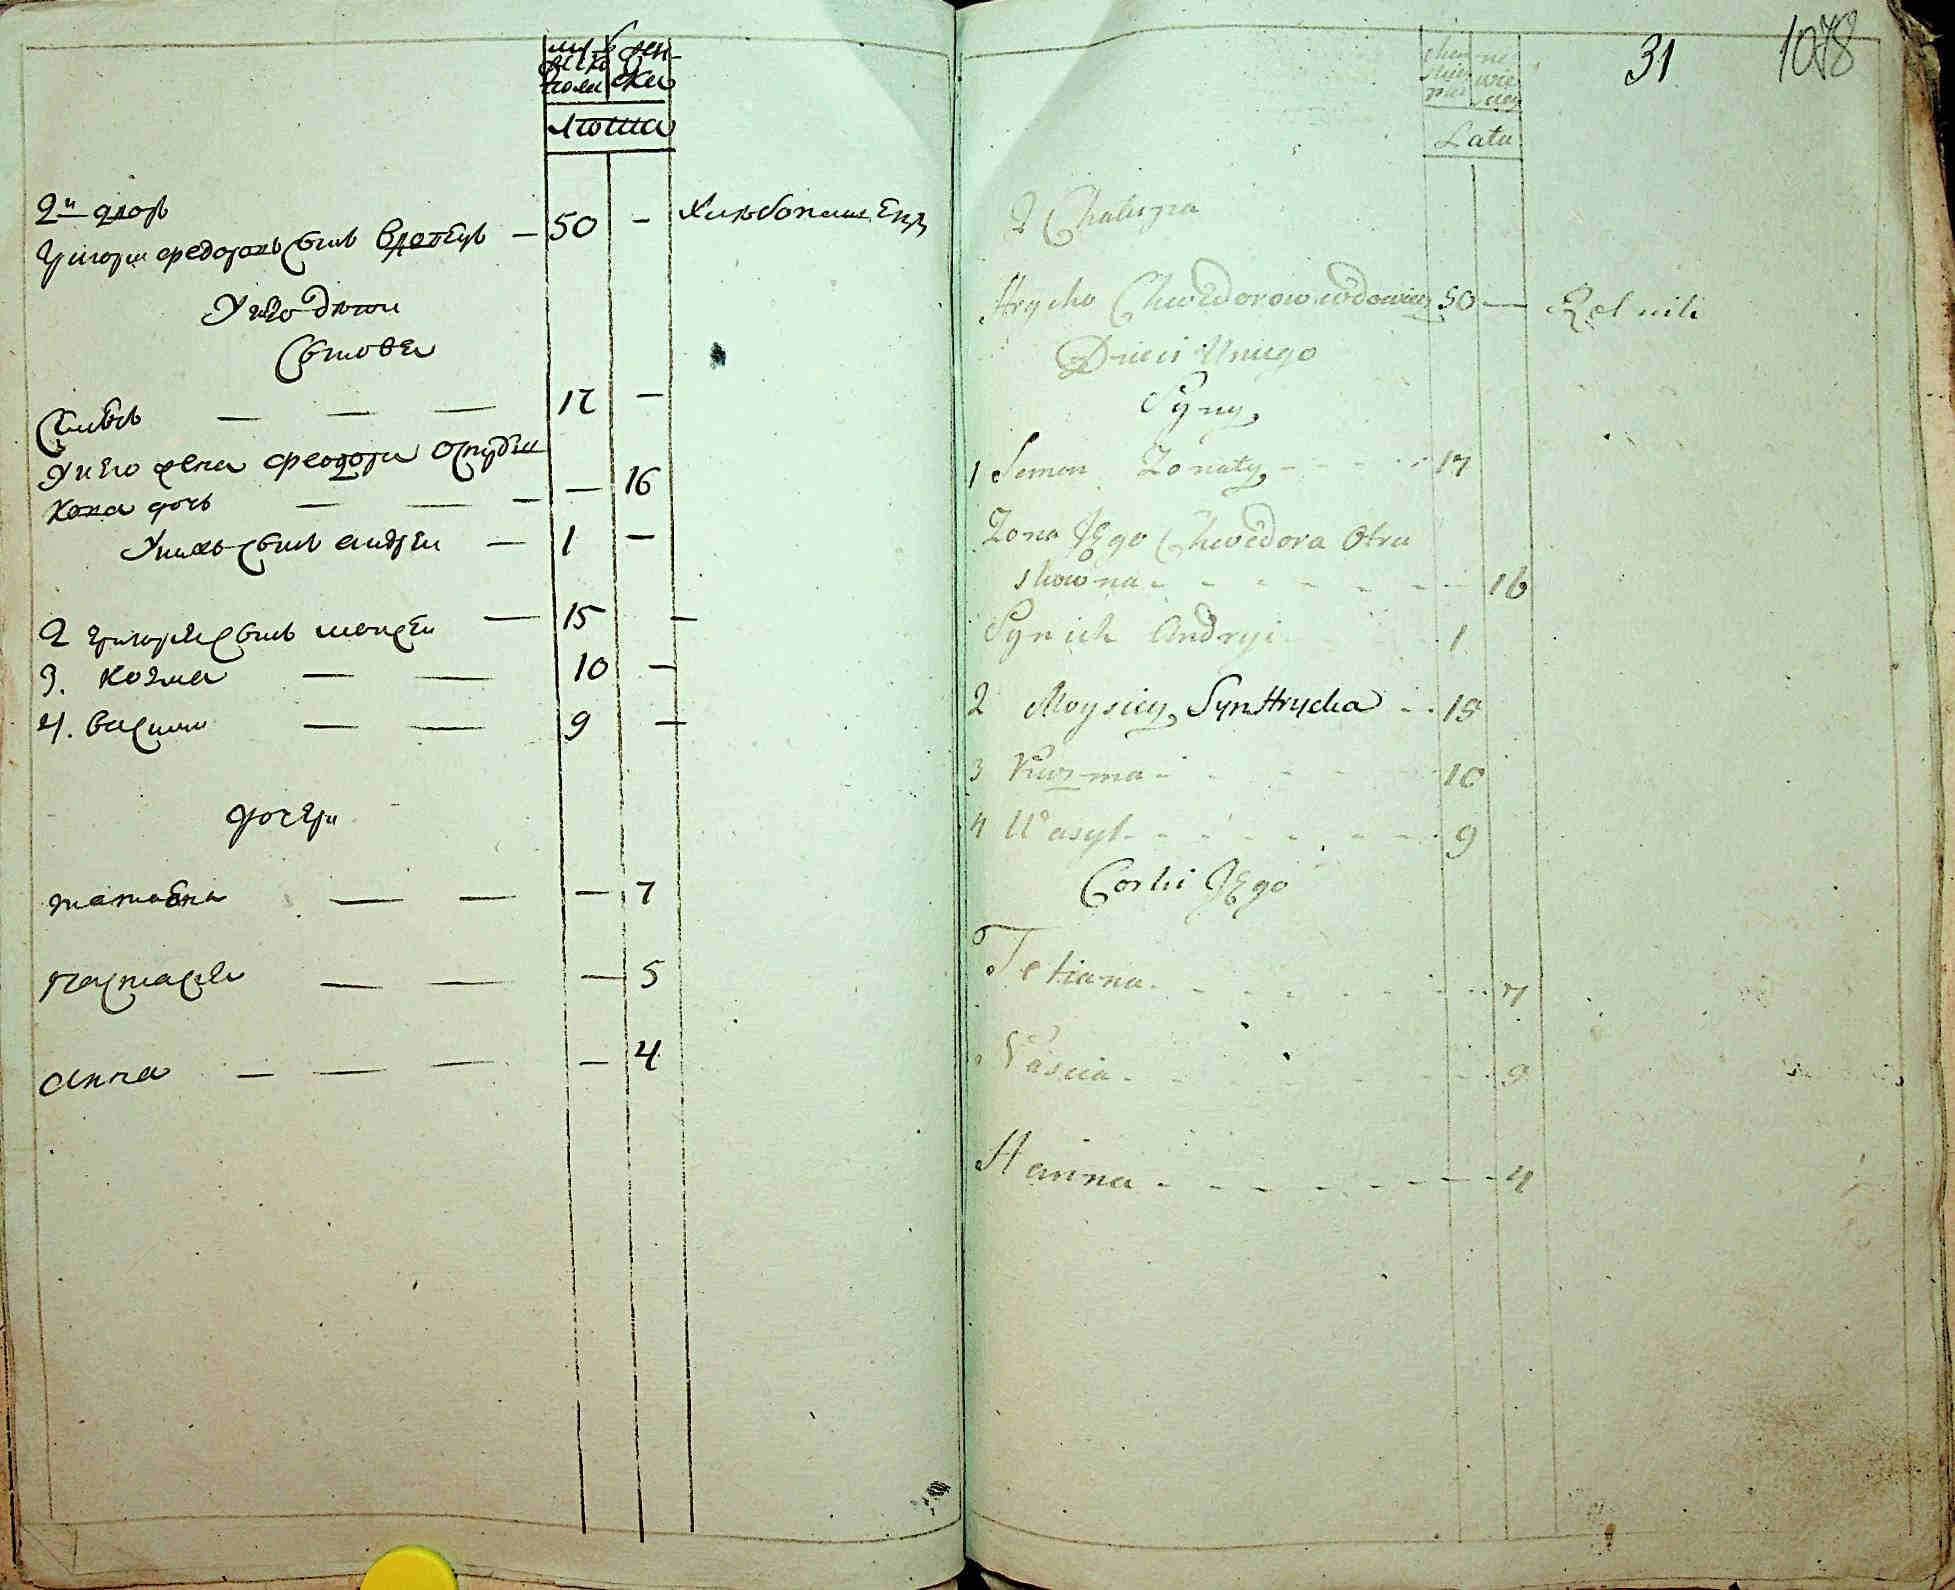 муж
ска
пола
жен
ска
Лѣта
2й дворъ
Григори Федоровъ сынъ вдовецъ — 50 — хлѣбопашецъ
У него дѣти
Сынове
Симеонъ — — — 17 —
У него жена Феодора
кова дочь — — — — 16
У нихъ сынъ Андрей — 1 —
2 Григорія сынъ Моисей — 15 —
3. Козма — — 10 —
4. Василий — — 9 —
Дочери
Татьяна — — — 7
Настасия — — — 5
Анна — — — — 4
31
1078
Lata
2 Chalupa
Hrycko Chwedorow wdowiec 50 — Rolnik
Dzieci Uniego
Syny
1 Semen Zonaty - - - - 17
Zona Jego Chwedora Ostru
skowna - - - - - - 16
Syn ich Andryi - - - 1
2 Moysiey Syn Hrycka - - 15
3 Kuzma - - - - - 10
4 Wasyl - - - - - - 9
Corki Jego
Tetiana - - - - - - - 7
Nascia - - - - - - 9
Hanna - - - - - - - - 4